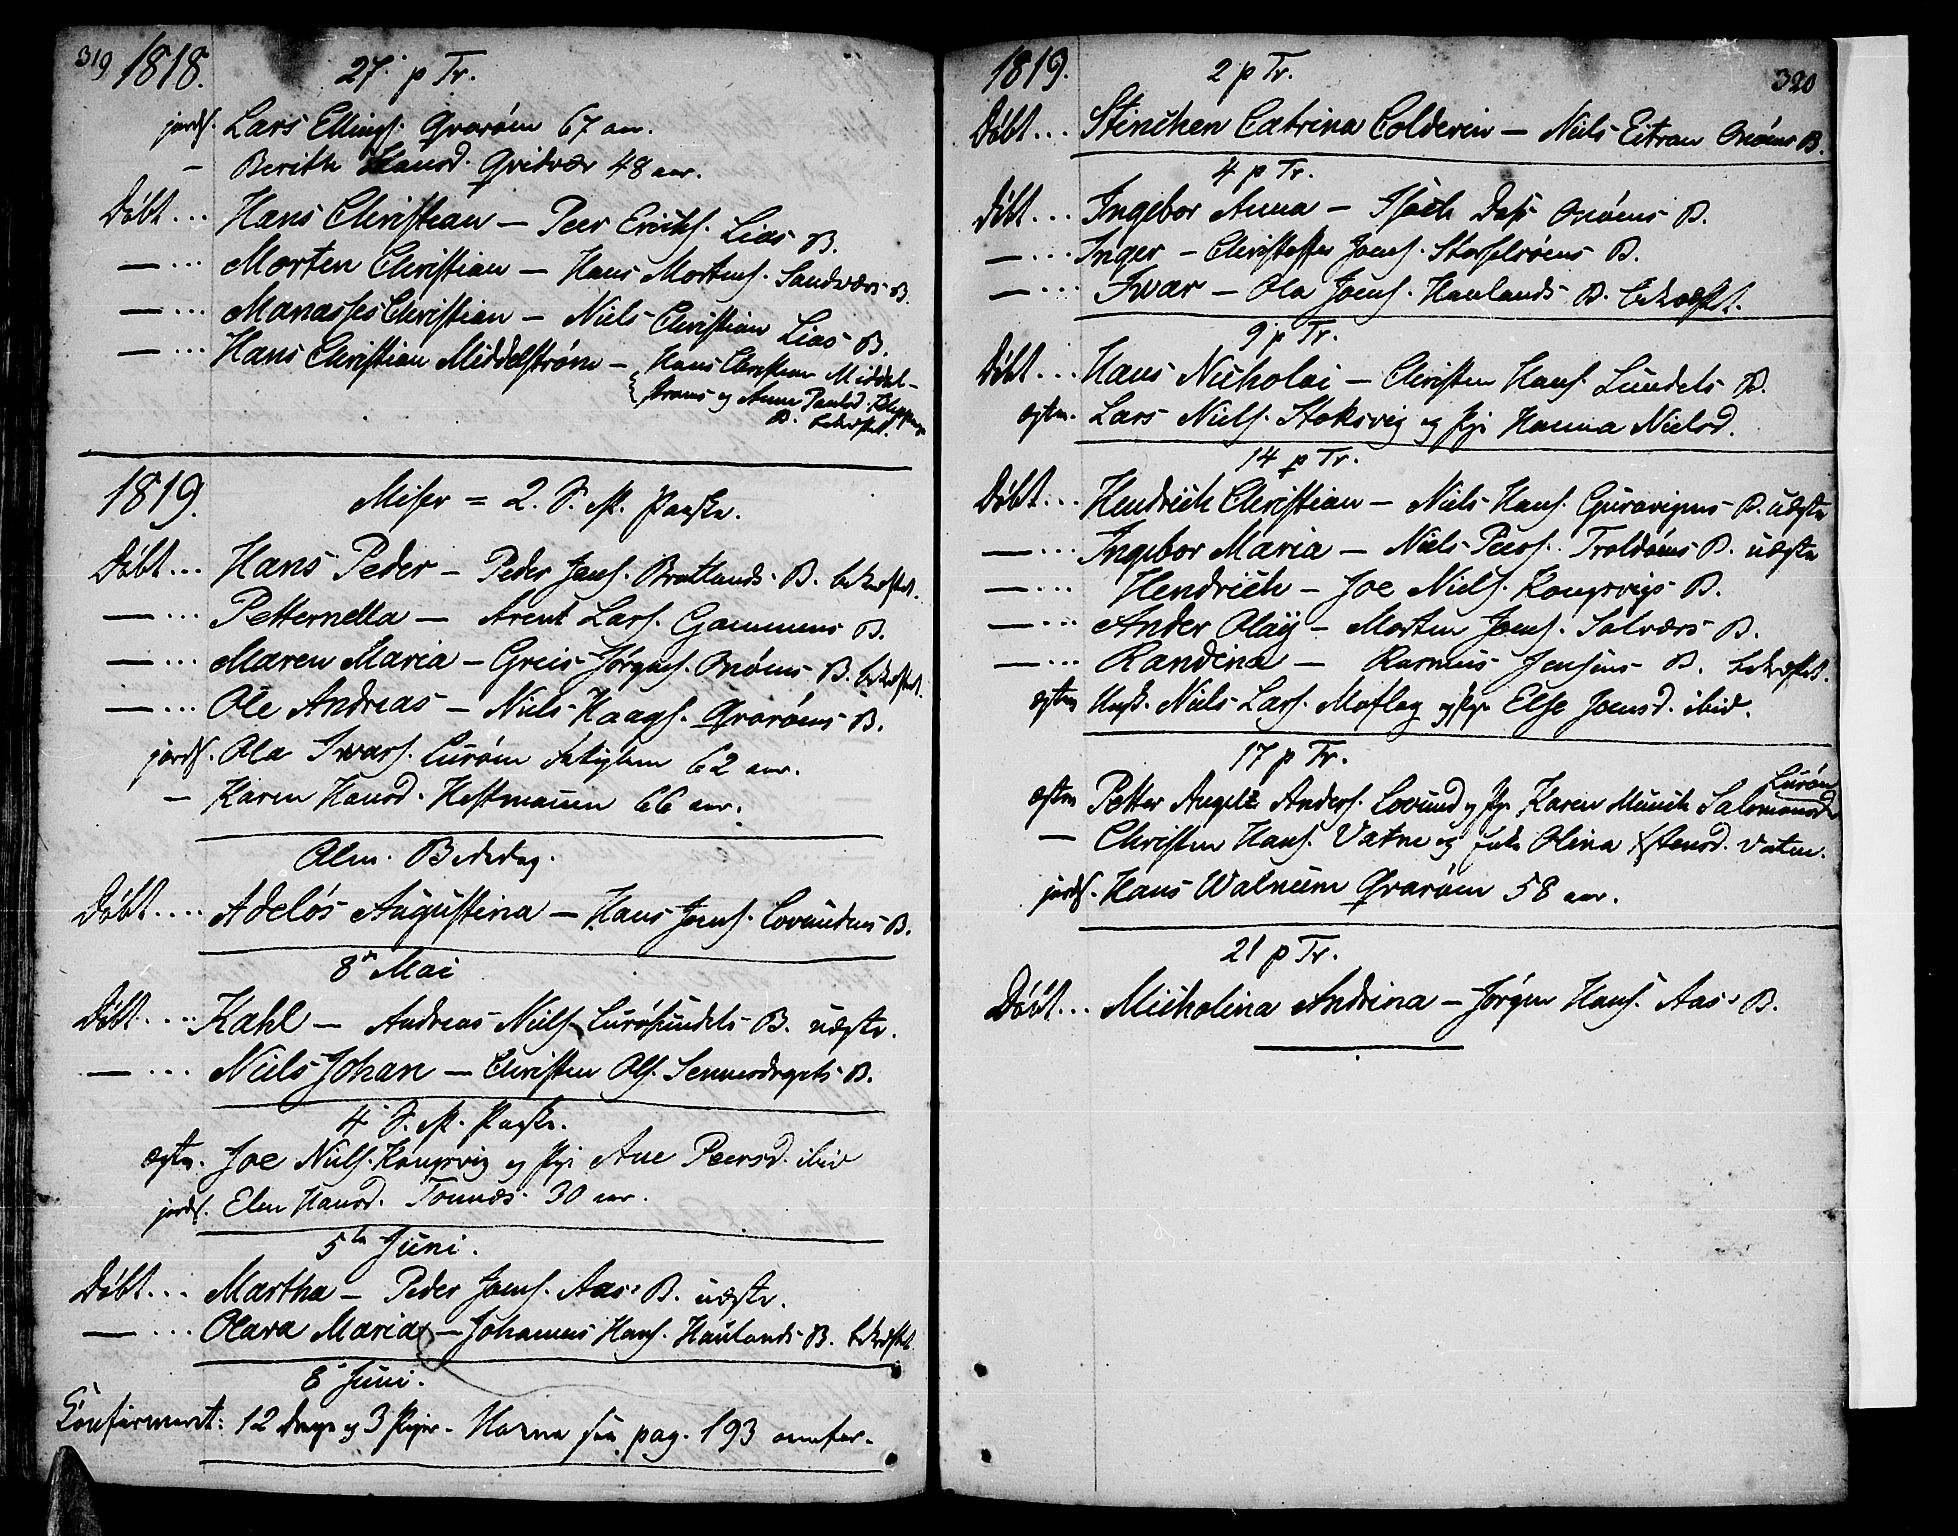 319 1818. 27. p Tr.
jordf. Lars Ellings. Qvarøm 67 aar.
— Berith Hansd. Qvidvær 48 aar.
Døbt ... Hans Christian — Peer Ericks. Lias B.
— ... Morten Christian — Hans Mortens. Sandværs B.
— ... Manasses Christian — Niels Christian Lias B.
— ... Hans Christian Middelstrøm — Hans Christian Middel-
strøms og Anne Paulsd.
B. bekræftet.
1819. Miser = 2. S. p. Paaske.
Døbt ... Hans Peder — Peder Jens. Bratlands B. bekræftet.
— ... Petternella — Arent Lars. Gammens B.
— ... Maren Maria — Greis Jørgens. Onøens B. bekræftet.
— ... Ole Andreas — Niels Haags. Qvarøens B.
jordf. Ola Iwars. Lurøm fattiglem 62 aar.
— Karen Hansd. Hestmanen 66 aar.
Alm. Bededag.
Døbt .... Adelós Augustina — Hans Joens. Lovundens B.
8de Mai
Døbt .... Kahl — Andreas Niels. Lurøsundets B. uægte.
— ... Niels Johan — Christen Ols. Sennesdragets B.
4. S. p. Paaske.
ægtev. Joe Niels. Kongsvig og pige Ane Peersd. ibid
jordf. Elen Hansd. Tonnes 30 aar.
5te Juni.
Døbt ... Martha — Peder Joens. Aas' B. uægte.
— ... Olava Maria — Johannes Hans. Haulands B. bekræftet
8 Juni.
Confirmeret: 12 drenge og 3 piger. Navne see pag. 193 overfor.
1819. 2 p Tr. 320
Døbt ... Stinchen Catrina Coldevin — Niels Eitran Onøens B.
4 p Tr.
Døbt ... Ingebor Anna — Isach Dass Onøens B.
— ... Inger — Christoffer Joens. Storselsøens B.
— ... Iwar — Ola Joens. Haulands B. bekræftet.
9 p Tr.
Døbt ... Hans Nicholai — Christen Hans. Sundets B.
ægtev. Lars Niels. Stoksvig og pige Hanna Nielsd.
14 p Tr.
Døbt ... Hendrich Christian — Niels Hans. B. uægte
— ... Ingebor Maria — Niels Peers. Troldøens B. uægte
— ... Hendrich — Joe Niels. Kongsvigs B.
— ... Ander Olaÿ — Morten Joens. Solværs B.
— ... Randina — Rasmus Jensens B. bekræftet.
ægtev. Ungk. Niels Lars. Moflag og pige Else Joensd. ibid.
17 p Tr.
ægtev. Petter Angell Anders. Lovund og pige Karen Munch Salomonsd. Lurøen
— Christen Hans. Vatne og enke Olina Stensd. Vatne.
jordf. Hans Walnum Qvarøm 58 aar.
21 p Tr.
Døbt ... Micholina Andrina — Jørgen Hans. Aas' B.